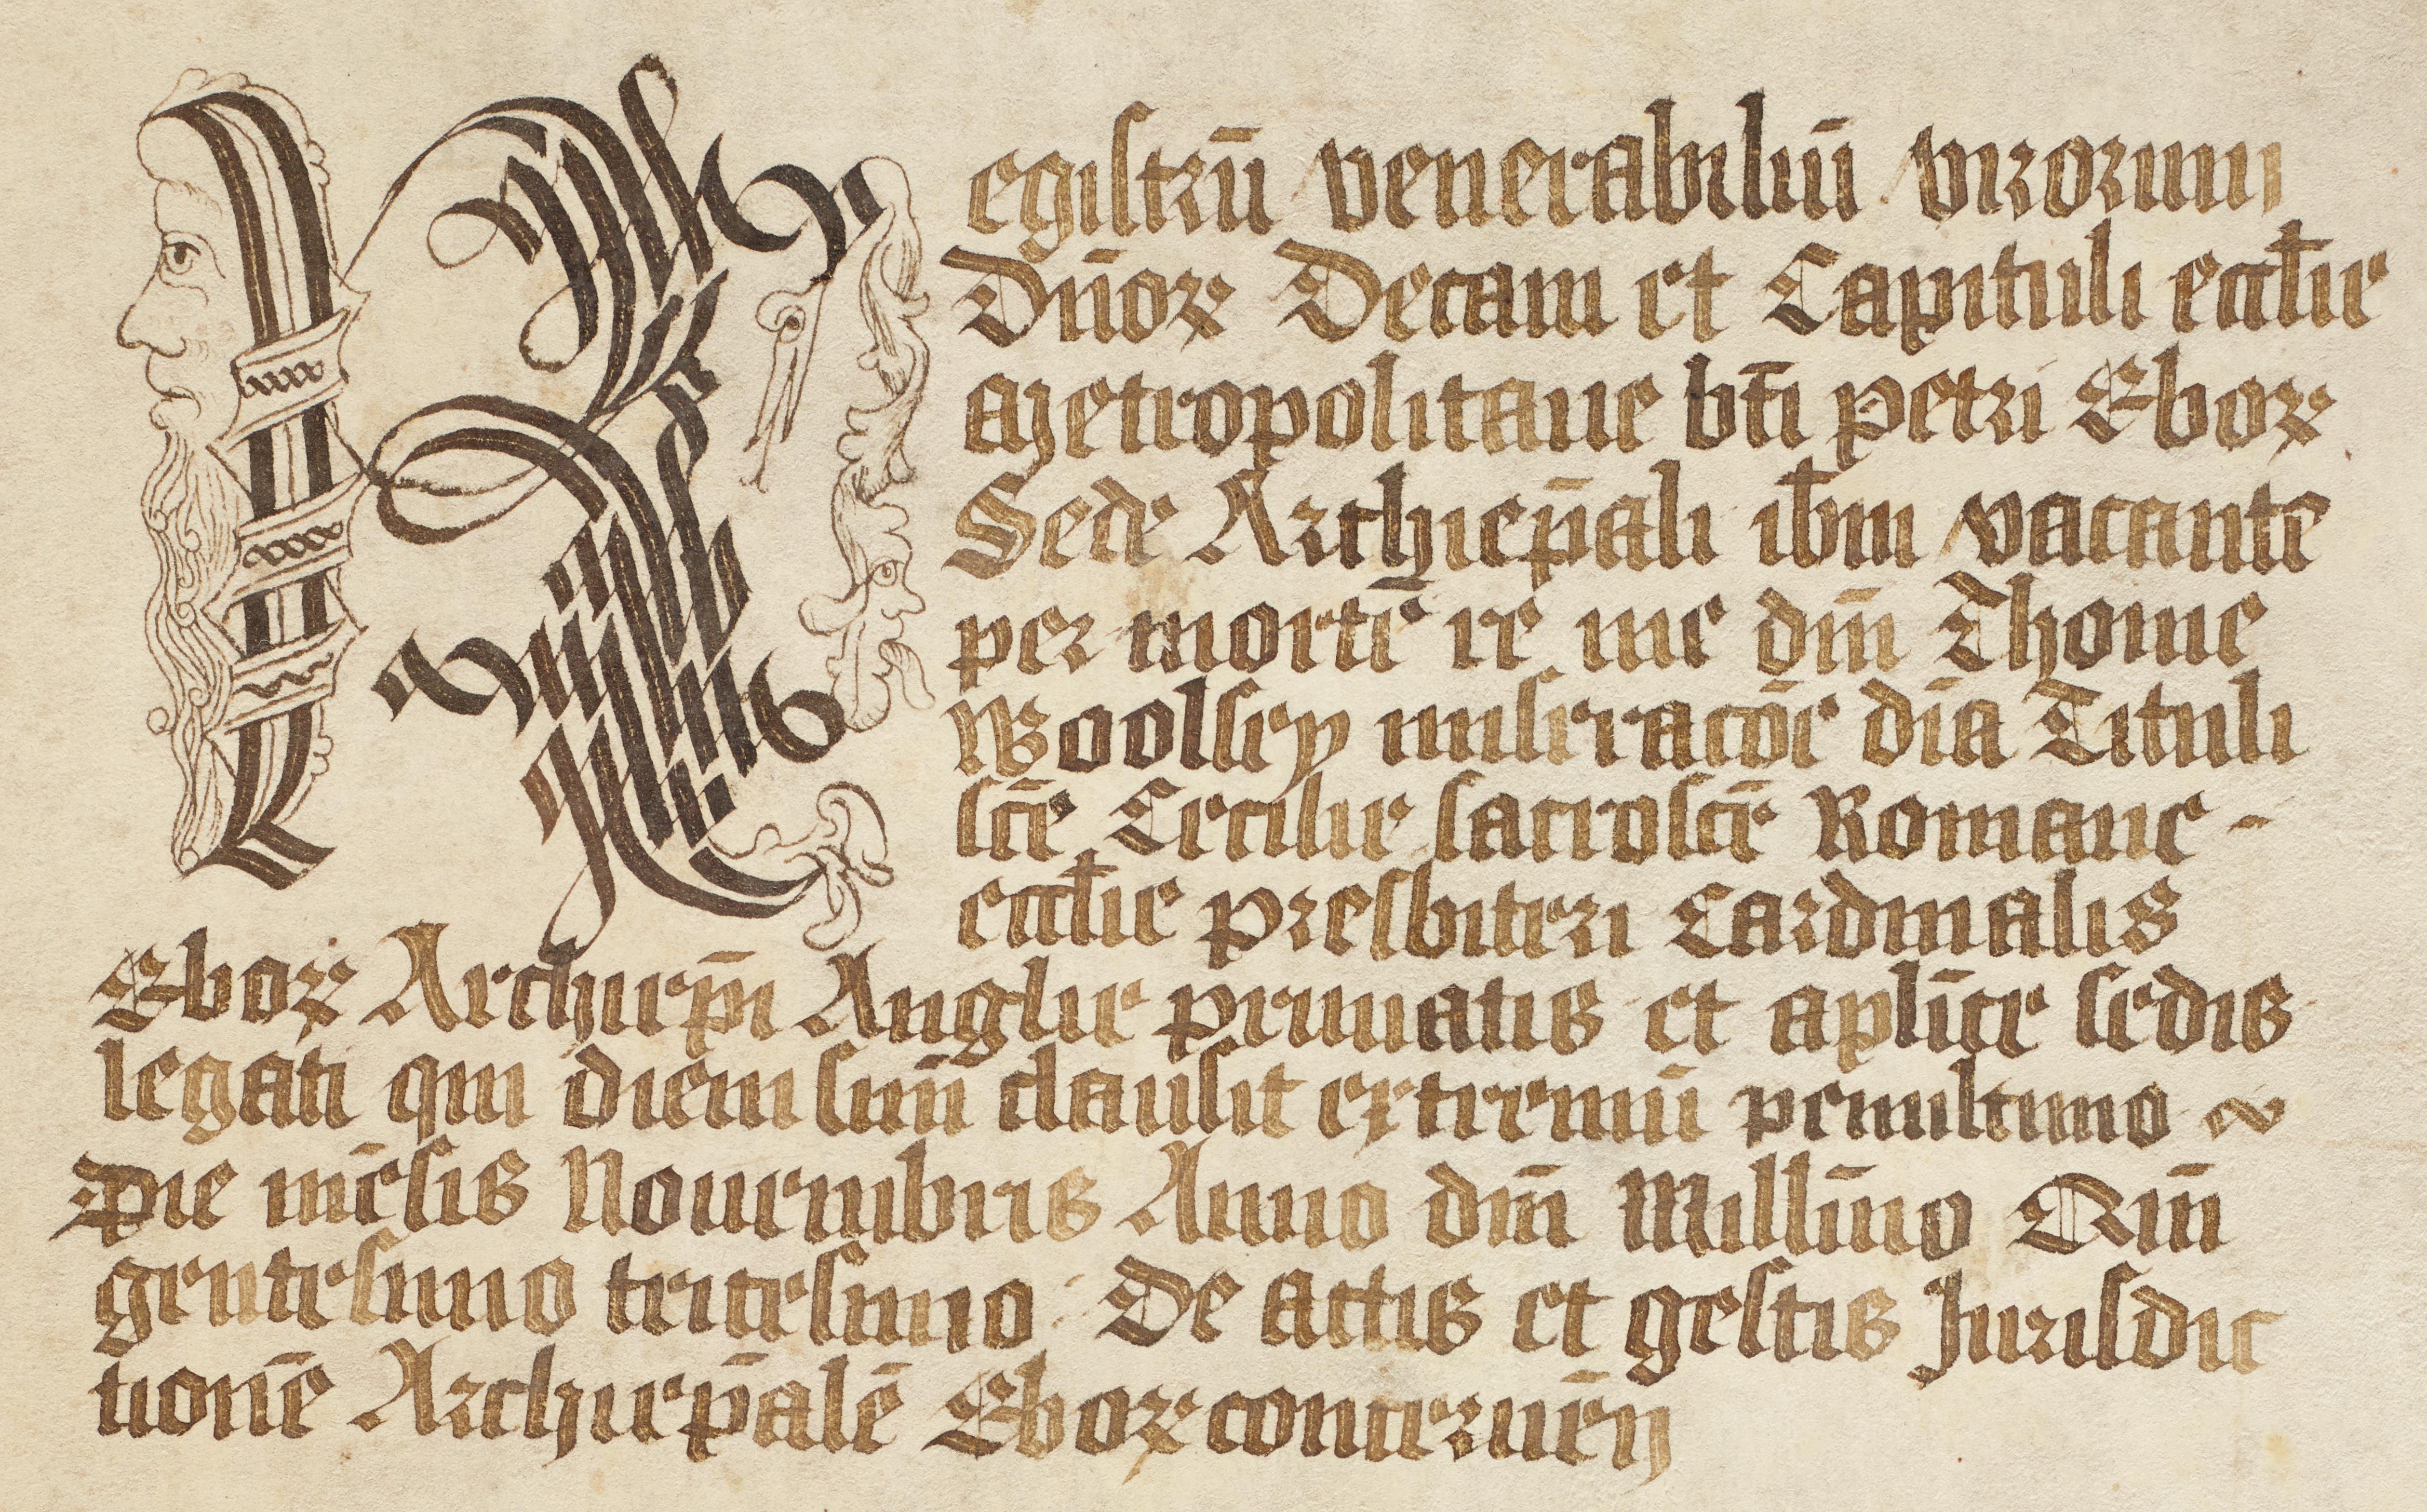 Registrū venerabiliū virorum
Dn̄oꝝ Decani et Capituli eccłie
Metropolitane bt̄i Petri Eboꝝ
Sede Archiep̄ali ib̄m vacante
per mortē re me dn̄i Thome
Woolsey miseracōe di̅a Tituli
sc̄e Cecilie sacrosc̄e Romane -
eccłie presbiteri Cardinalis
Eboꝝ Archiep̄i Anglie primatis et apl̄ice sedis
legati qui diem suū clausit extremū penultimo
Die mēsis Novembris Anno dn̄i Millīmo Quin
gentesimo tricesimo De actis et gestis Jurisdic
tionē Archiep̄alē Eboꝝ concernēn